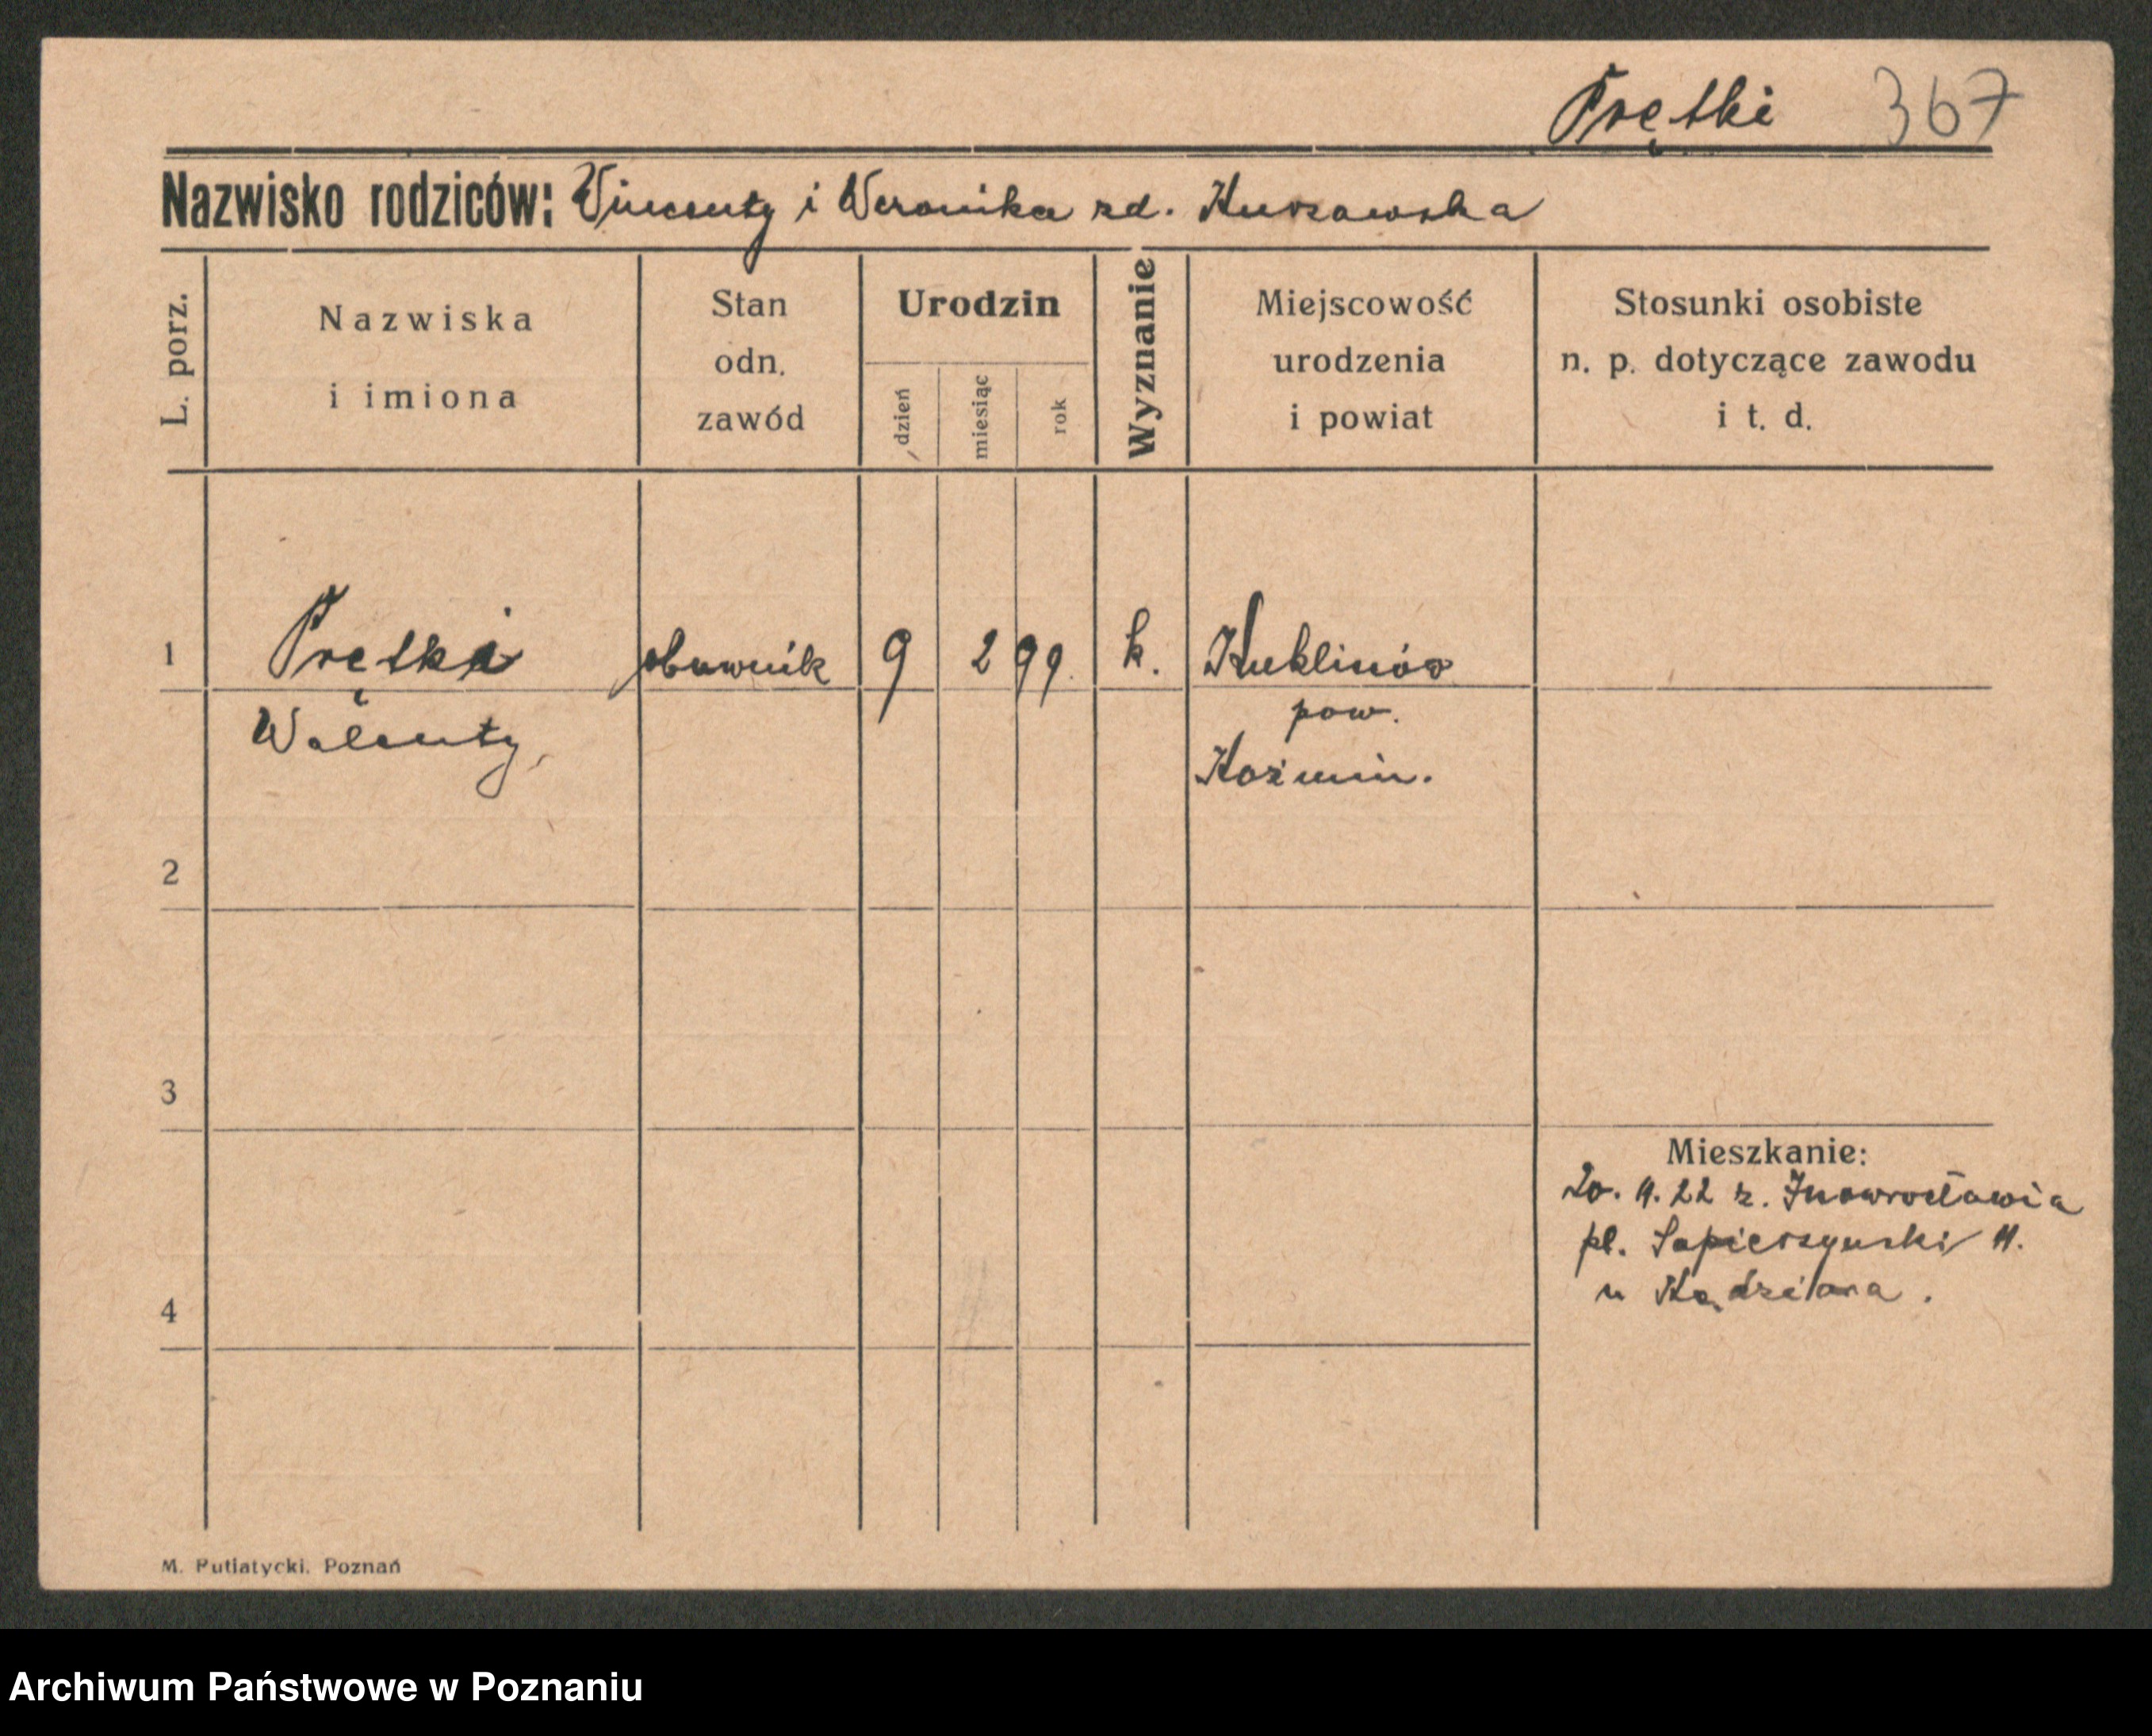 Prętki 367
Nazwisko rodziców: Wincenty i Weronika zd. Kurzawska
L. porz.
Nazwiska
i imiona
Stan
odn.
zawód
Urodzin
dzień
miesiąc
rok
Wyznanie
Miejscowość
urodzenia
i powiat
Stosunki osobiste
n. p. dotyczące zawodu
i t. d.
1 Prętki obuwnik 9 2 99. k. Kuklinów
Walenty, pow.
Koźmin.
2
3
4
Mieszkanie:
20. 11. 22 z. Inowrocławia
pl. Sapierzynski 11.
u
M. Putiatycki. Poznań
Archiwum Państwowe w Poznaniu